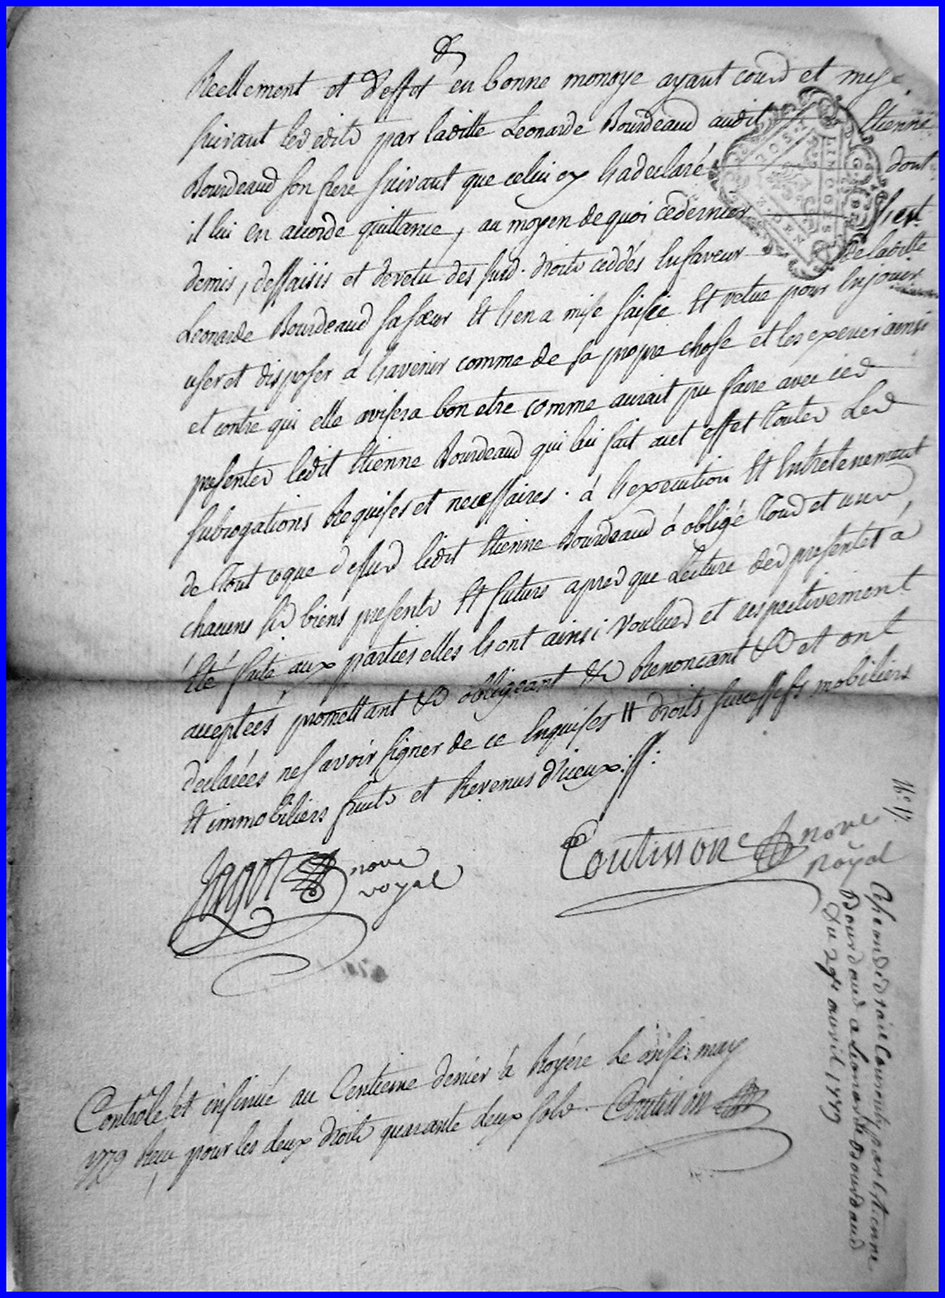 &
Reellement et d'effet en bonne monoye ayant cours et mise
suivant les edits par ladite Leonarde Bourdeaud audit Etienne
Bourdeaud son frere suivant que celui cy l'a declaré dont
il lui en accorde quittance, au moyen de quoi ce dernier s'est
demis, dessaisis et devetu des susd. droits cédés en faveur de ladite
Leonarde Bourdeaud sa sœur et l'en a mise saisie et vetue pour en jouir
user et disposer à l'avenir comme de sa propre chose et les exercer ainsi
et contre qui elle avisera bon etre comme aurait pu faire avec ced
presentes ledit Etienne Bourdeaud qui lui fait a cet effet toutes les
subrogations requises et necessaires. à l'execution et entretenement
de tout ce que dessus ledit Etienne Bourdeaud à obligé tous et un
chacuns ses biens presents et futurs apres que lecture des presentes à
été faite aux parties elles l'ont ainsi voulues et respectivement
acceptées promettant &a obligeant &a renoncant &a et ont
declarées ne savoir signer de ce enquises # droits successifs mobiliers
et immobiliers fruits et revenus d'iceux.
Jagot nore royal
Coutisson nore Royal
Contrôlé et insinué au Centieme denier à Royére le onse may
1779 Recu pour les deux droits quarante deux sols. Coutisson
No 17.
par Etienne
Bourdeaud a Leonarde Bourdeaud
Du 29e avril 1779